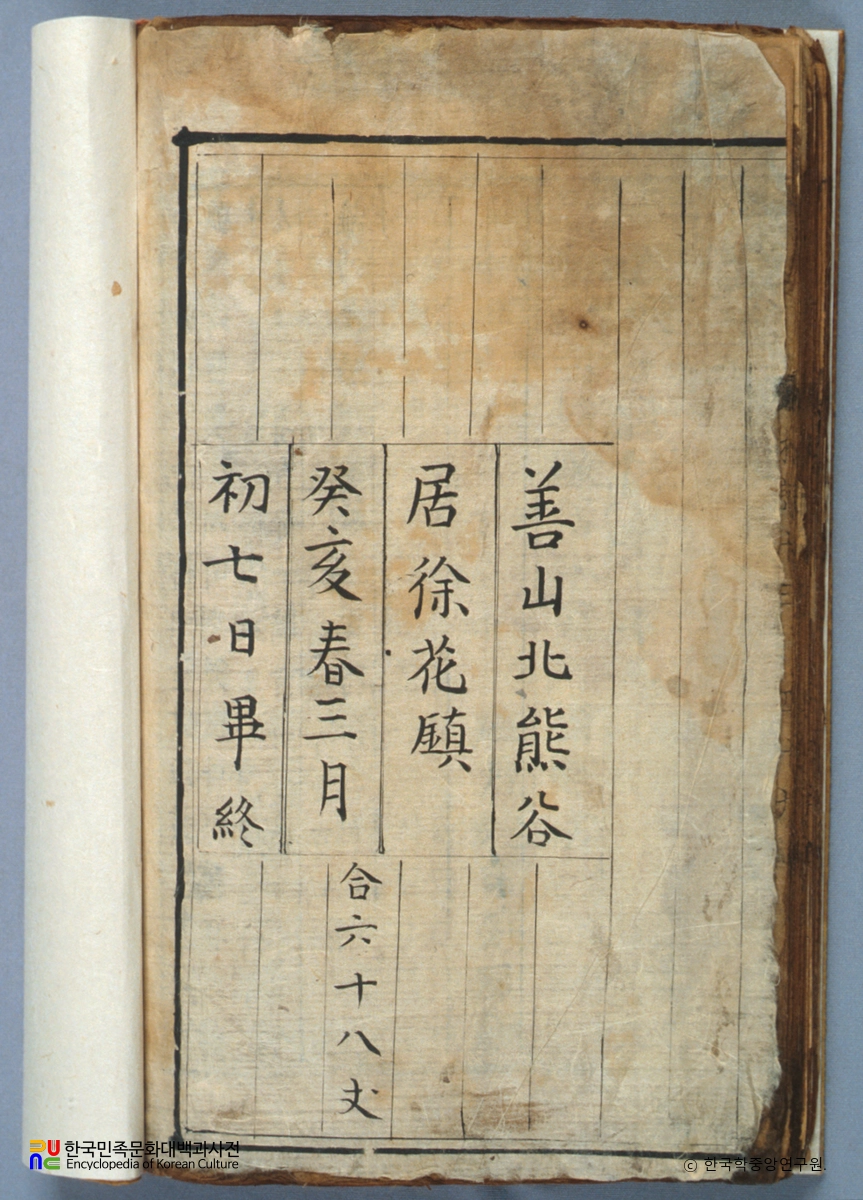 善山北熊谷
居徐花鎭
癸亥春三月
初七日畢終
合六十八丈
한국민족문화대백과사전
Encyclopedia of Korean Culture
ⓒ 한국학중앙연구원.